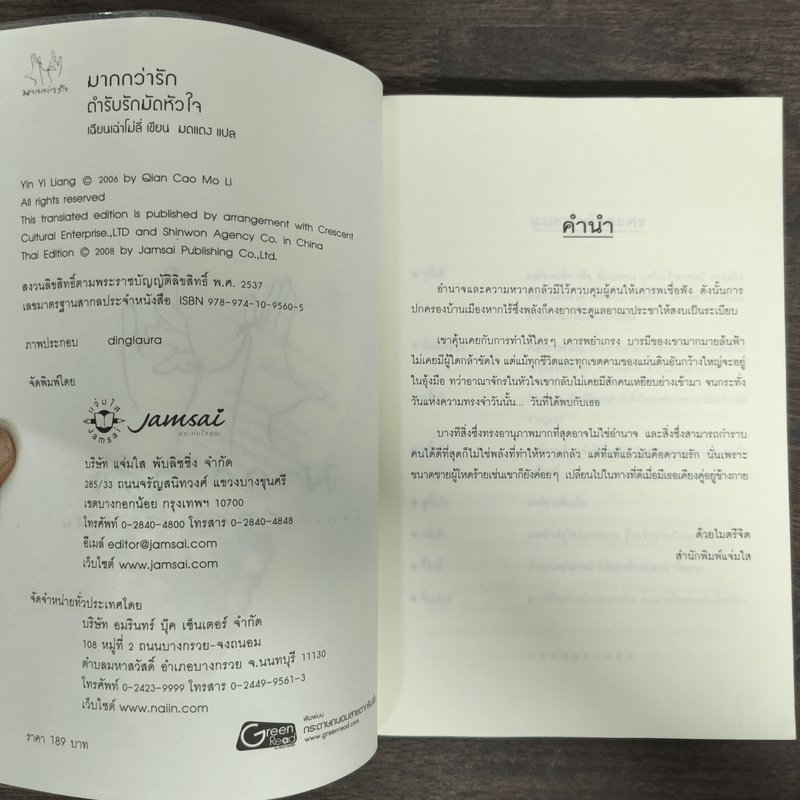 มากกว่ารัก
มากกว่ารัก
ตำรับรักมัดหัวใจ
เฉียนเฉ่าโม่ลี่ เขียน มดแดง แปล
Yin Yi Liang © 2006 by Qian Cao Mo Li
All rights reserved
This translated edition is published by arrangement with Crescent
Cultural Enterprise.,LTD and Shinwon Agency Co. in China
Thai Edition © 2008 by Jamsai Publishing Co.,Ltd.
สงวนลิขสิทธิ์ตามพระราชบัญญัติลิขสิทธิ์ พ.ศ. 2537
เลขมาตรฐานสากลประจำหนังสือ ISBN 978-974-10-9560-5
ภาพประกอบ dinglaura
จัดพิมพ์โดย
แจ่มใส
Jamsai
Jamsai
ประทับใจคุณ
บริษัท แจ่มใส พับลิชชิ่ง จำกัด
285/33 ถนนจรัญสนิทวงศ์ แขวงบางขุนศรี
เขตบางกอกน้อย กรุงเทพฯ 10700
โทรศัพท์ 0-2840-4800 โทรสาร 0-2840-4848
อีเมล์ editor@jamsai.com
เว็บไซต์ www.jamsai.com
จัดจำหน่ายทั่วประเทศโดย
บริษัท อมรินทร์ บุ๊ค เซ็นเตอร์ จำกัด
108 หมู่ที่ 2 ถนนบางกรวย-จงถนอม
ตำบลมหาสวัสดิ์ อำเภอบางกรวย จ.นนทบุรี 11130
โทรศัพท์ 0-2423-9999 โทรสาร 0-2449-9561-3
เว็บไซต์ www.naiin.com
ราคา 189 บาท
Green
Read
พิมพ์บน
กระดาษถนอมสายตากรีนรี้ด
www.greenread.com
คำนำ
อำนาจและความหวาดกลัวมีไว้ควบคุมผู้คนให้เคารพเชื่อฟัง ดังนั้นการ
ปกครองบ้านเมืองหากไร้ซึ่งพลังก็คงยากจะดูแลอาณาประชาให้สงบเป็นระเบียบ
เขาคุ้นเคยกับการทำให้ใครๆ เคารพยำเกรง บารมีของเขามากมายล้นฟ้า
ไม่เคยมีผู้ใดกล้าขัดใจ แต่แม้ทุกชีวิตและทุกเขตคามของแผ่นดินอันกว้างใหญ่จะอยู่
ในอุ้งมือ ทว่าอาณาจักรในหัวใจเขากลับไม่เคยมีสักคนเหยียบย่างเข้ามา จนกระทั่ง
วันแห่งความทรงจำวันนั้น... วันที่ได้พบกับเธอ
บางทีสิ่งซึ่งทรงอานุภาพมากที่สุดอาจไม่ใช่อำนาจ และสิ่งซึ่งสามารถกำราบ
คนได้ดีที่สุดก็ไม่ใช่พลังที่ทำให้หวาดกลัว แต่ที่แท้แล้วมันคือความรัก นั่นเพราะ
ขนาดชายผู้โหดร้ายเช่นเขาก็ยังค่อยๆ เปลี่ยนไปในทางที่ดีเมื่อมีเธอเคียงคู่อยู่ข้างกาย
ด้วยไมตรีจิต
สำนักพิมพ์แจ่มใส